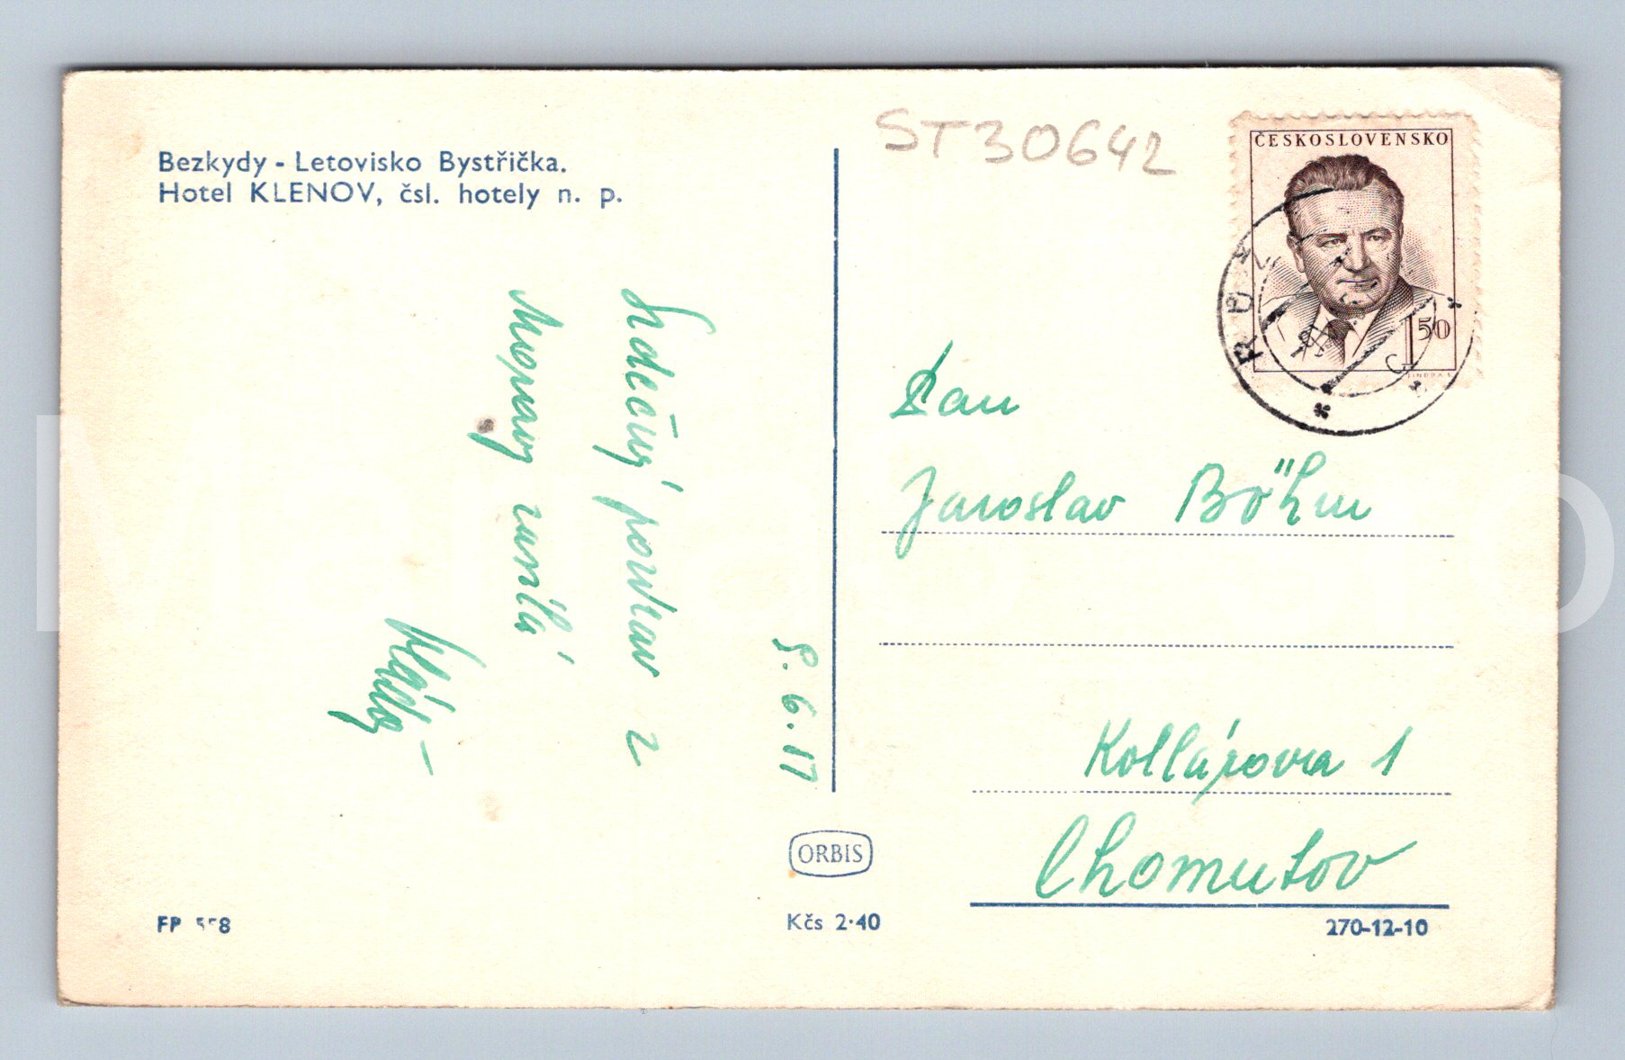 Bezkydy - Letovisko Bystřička.
Hotel KLENOV, čsl. hotely n. p.
ST30642
ČESKOSLOVENSKO
1 50
Srdečný pozdrav z
Moravy zasílá
Pan
Jaroslav Böhm
Kollárova 1
Chomutov
ORBIS
FP 558
Kčs 2·40
270-12-10